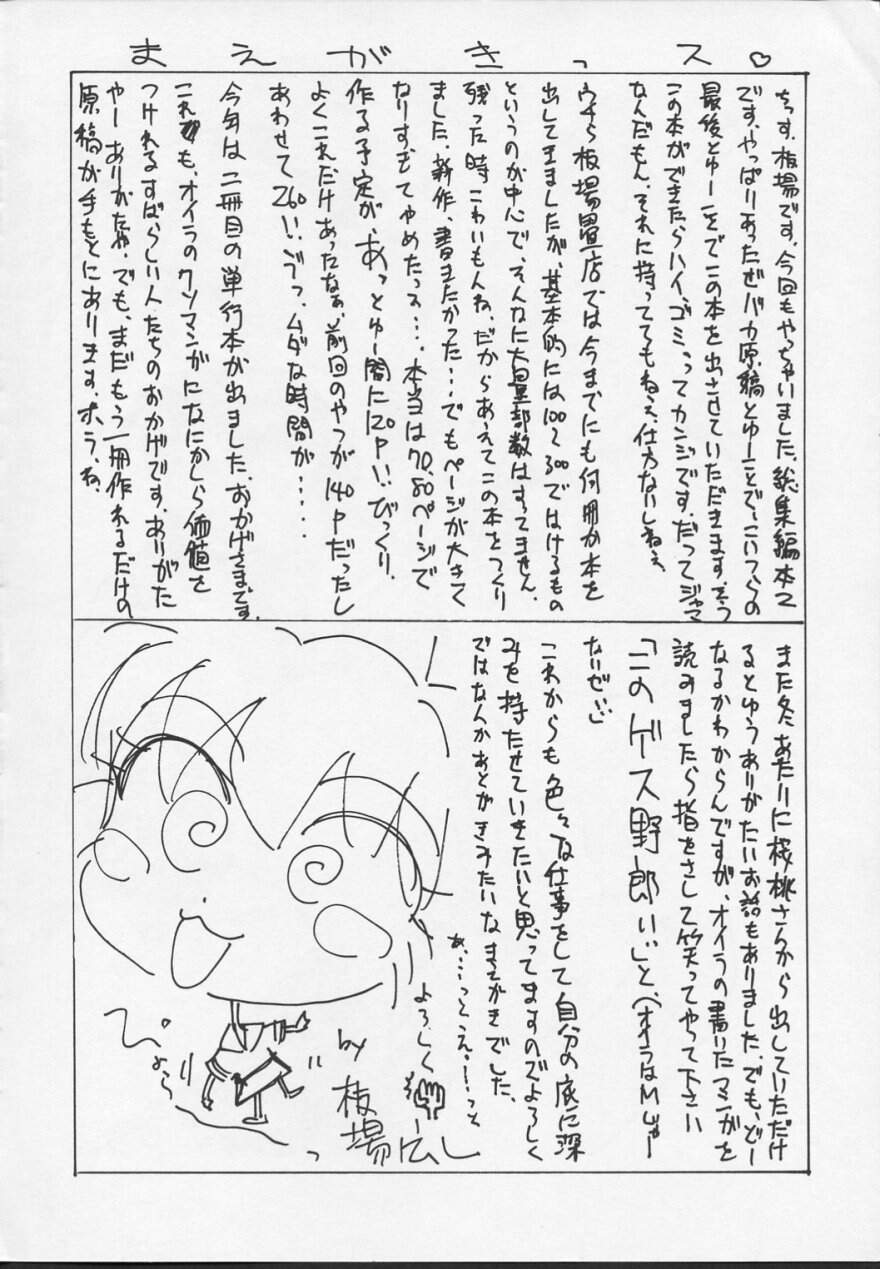 まえがきっス♡
ちっす、板場です。今回もやっちゃいました、総集編本て
です。やっぱりあったぜバカ原稿とゆーことで、こいつらの
最後とゆーことでこの本を出させていただきます。もう
この本ができたらハイ、ゴミってカンジです。だってジャマ
なんだもん。それに持っててもねぇ、仕方ないしねぇ。
ウチら板場畳店では今までにも何冊か本を
出してきましたが、基本的には100〜300ではけるもの
というのが中心で、そんなに大量部数はすってません。
残った時こわいもんね。だからあえてこの本をつくり
ました。新作、書きたかった…でもページが大きく
なりすぎてやめたっス…。本当は70,80ページで
作る予定が、あっとゆー間に120P!!びっくり、
よくこれだけあったなぁ、前回のやつが140Pだったし
あわせて260!!ゔっ、ムダな時間が……
今年は二冊目の単行本が出ました。おかげさまです。
これも、オイラのクソマンガになにかしら価値を
つけれるすばらしい人たちのおかげです。ありがた
やーありがたや。でも、まだもう一冊作れるだけの
原稿が手もとにあります。ホラ、ね。
また冬あたりに桜桃さんから出していただけ
るとゆうありがたいお話もありました。でも、どー
なるかわからんですが、オイラの書いたマンガを
読みましたら指をさして笑ってやって下さい
「このゲス野郎!!」と、オイラはMじゃー
ないぜ!!
これからも色々な仕事をして自分の底に深
みを持たせていきたいと思ってますのでよろしく
ではなんかあとがきみたいなまえがきでした。
あ…っとえー…っと
よろしく
by 板場広し
っ